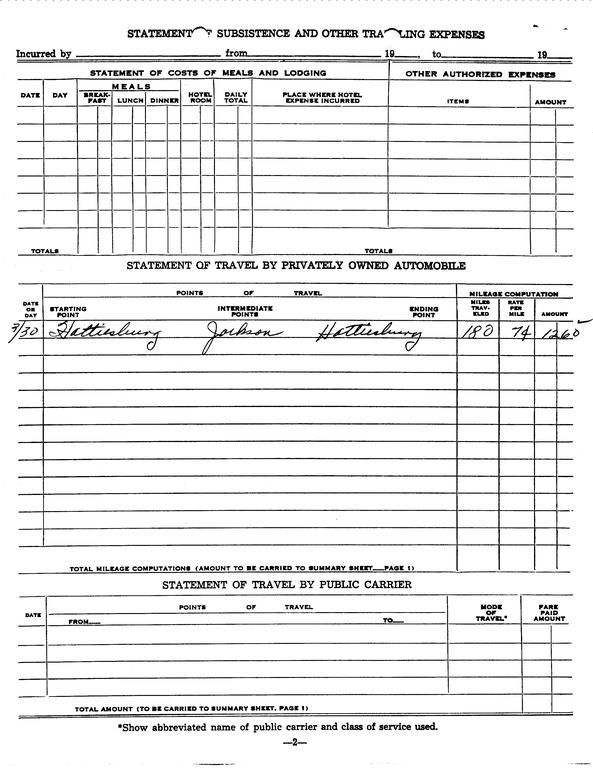 STATEMENT OF SUBSISTENCE AND OTHER TRAVELING EXPENSES
Incurred by from 19 , to 19
STATEMENT OF COSTS OF MEALS AND LODGING OTHER AUTHORIZED EXPENSES
DATE DAY MEALS BREAK-FAST LUNCH DINNER HOTEL ROOM DAILY TOTAL PLACE WHERE HOTEL EXPENSE INCURRED ITEMS AMOUNT
TOTALS TOTALS
STATEMENT OF TRAVEL BY PRIVATELY OWNED AUTOMOBILE
POINTS OF TRAVEL MILEAGE COMPUTATION
DATE OR DAY STARTING POINT INTERMEDIATE POINTS ENDING POINT MILES TRAV-ELED RATE PER MILE AMOUNT
3/30 Hattiesburg Jackson Hattiesburg 180 7¢ 1260
TOTAL MILEAGE COMPUTATIONS (AMOUNT TO BE CARRIED TO SUMMARY SHEET—PAGE 1)
STATEMENT OF TRAVEL BY PUBLIC CARRIER
DATE POINTS OF TRAVEL MODE OF TRAVEL* FARE PAID AMOUNT
FROM— TO—
TOTAL AMOUNT (TO BE CARRIED TO SUMMARY SHEET, PAGE 1)
*Show abbreviated name of public carrier and class of service used.
—2—